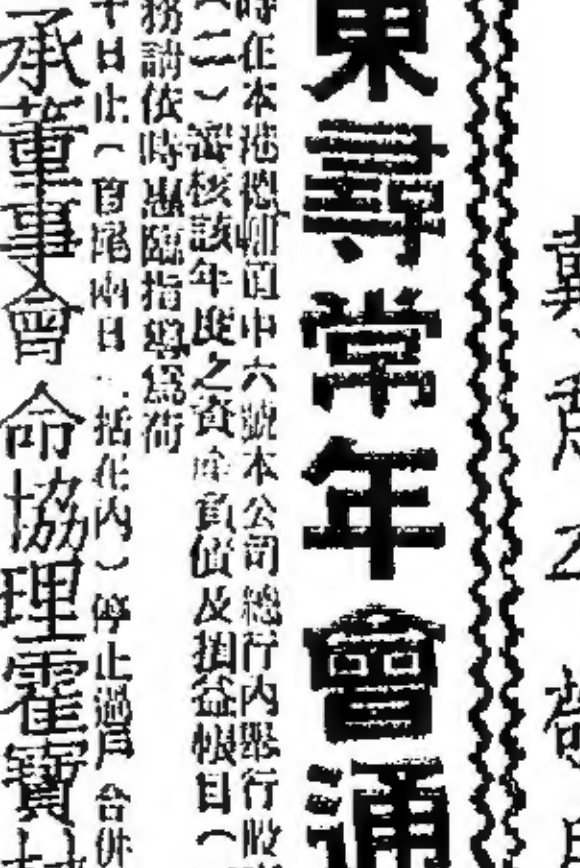 東尋常年會通
時在本港德輔道中六號本公司總行內舉行股
（二）審核該年度之資產負債及損益帳目（
務請依時惠臨指導為荷
十日止（首尾兩日包括在內）停止過戶合併
承董事會命協理霍寶材